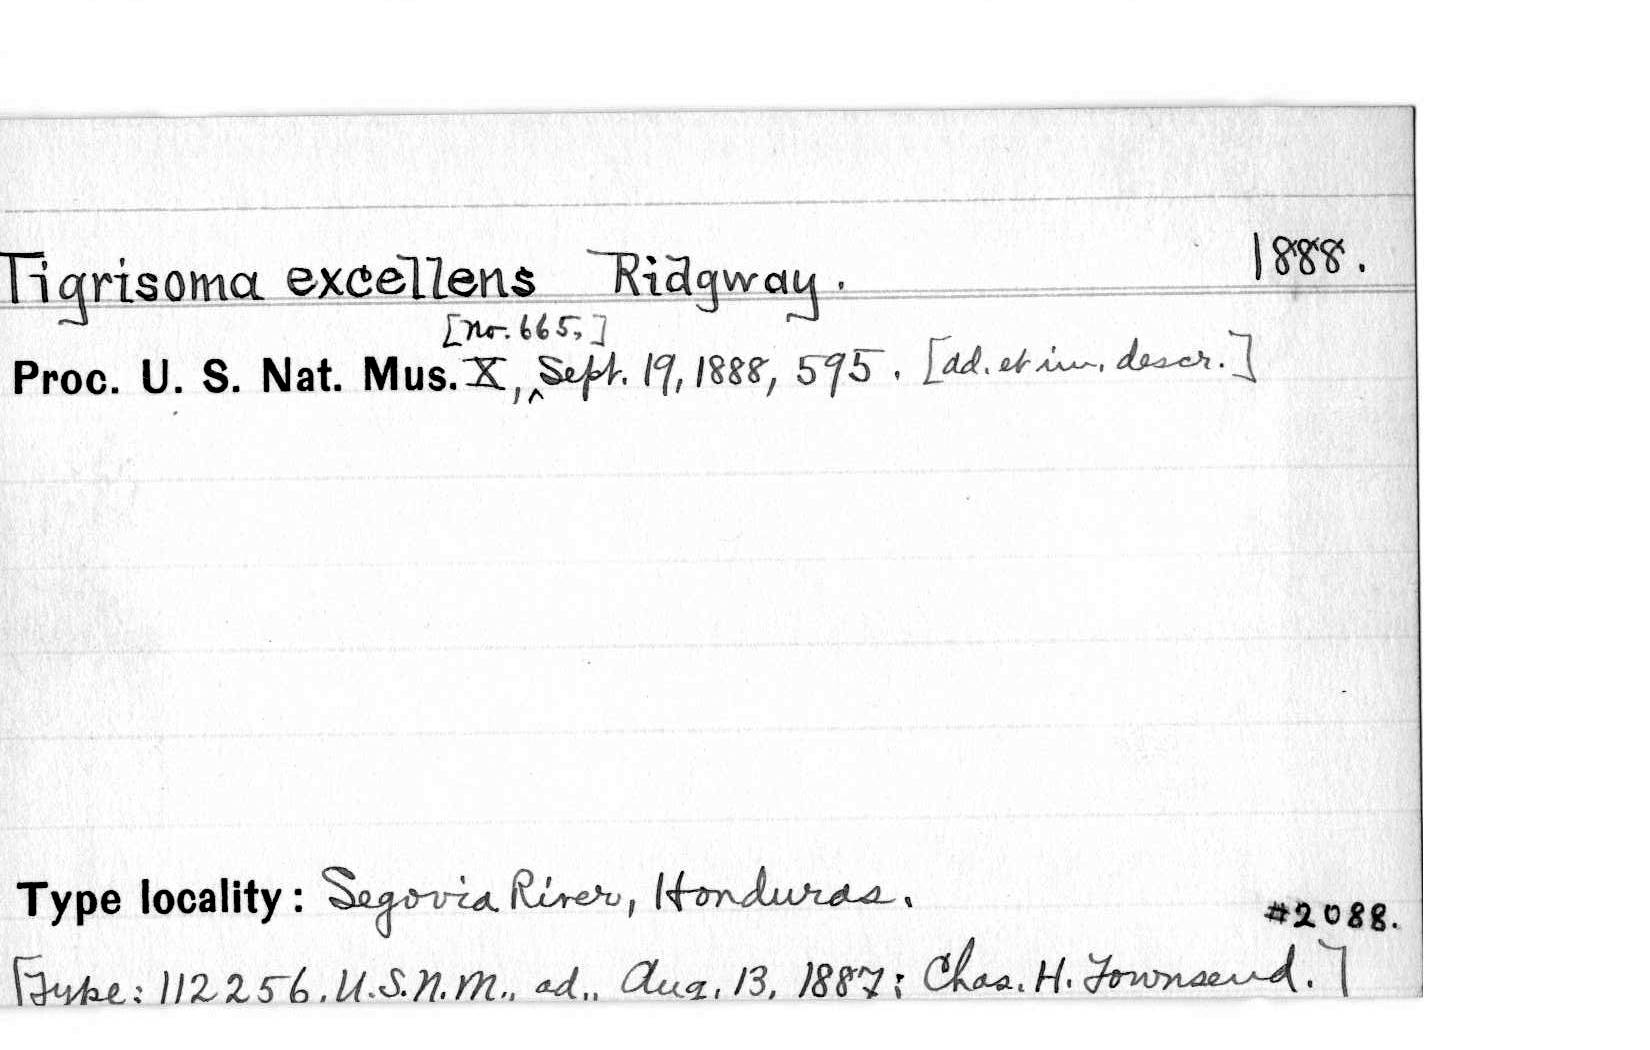 Tigrisoma excellens Ridgway. 1888.
[no. 665,]
Proc. U. S. Nat. Mus. X, ‸ Sept. 19, 1888, 595. [ad. et im. descr.]
Type locality: Segovia River, Honduras.
#2088.
[Type: 112256, U.S.N.M., ad., Aug. 13, 1887; Chas. H. Townsend.]